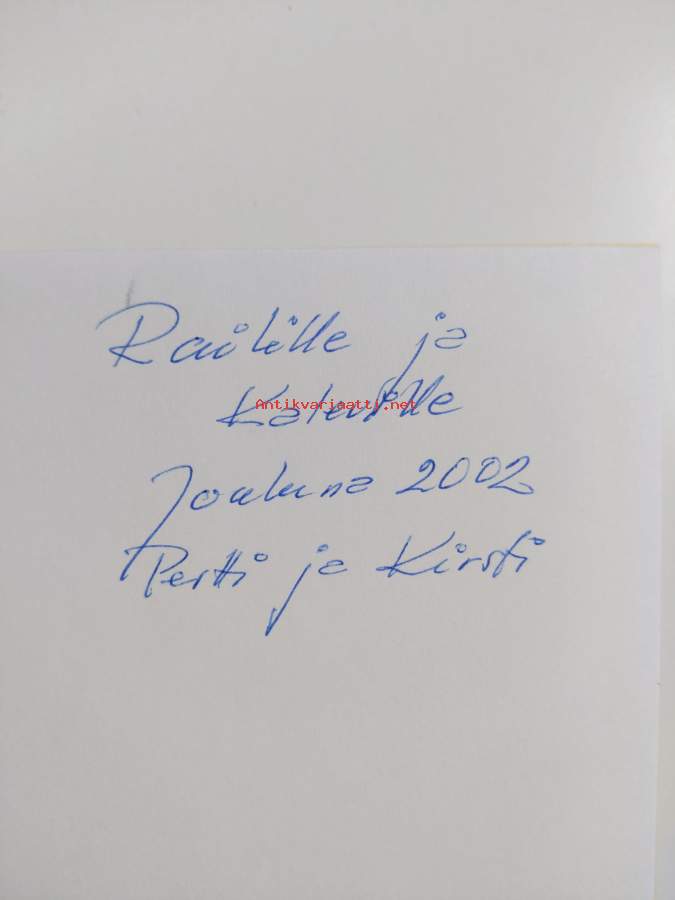 Railille ja
Antikvariaatti.net
Jouluna 2002
Pertti ja Kirsti